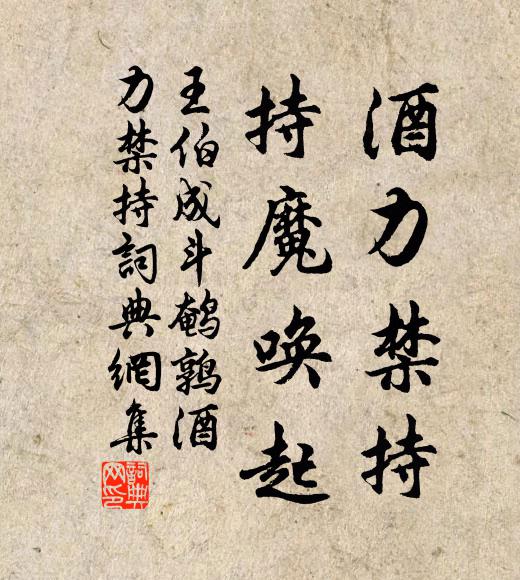 酒力禁持
持魔唤起
王伯成斗鹌鹑酒
力禁持詞典網集
詞典
网印